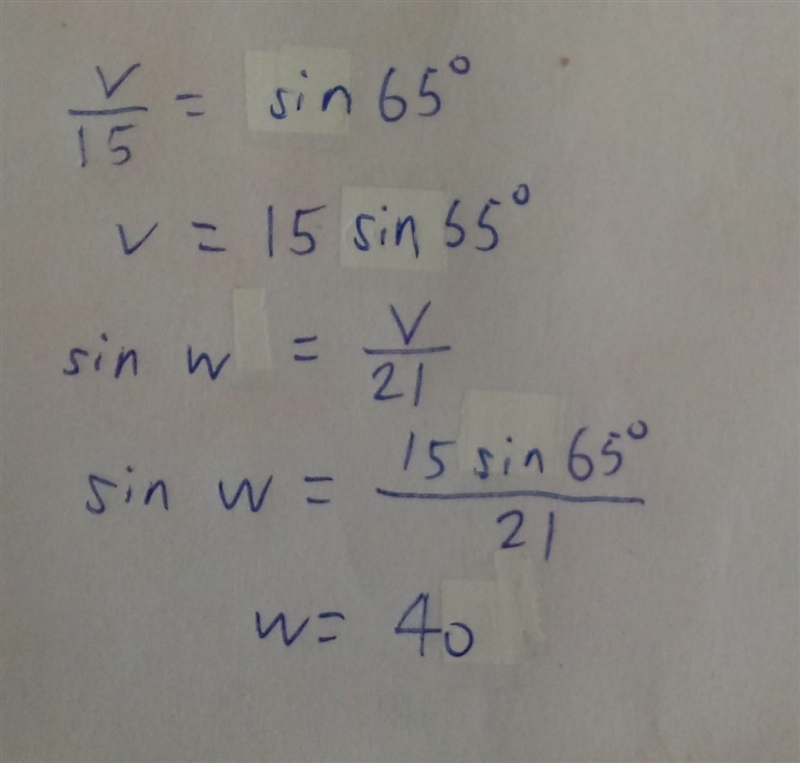 v/15 = sin 65°
v = 15 sin 65°
sin w = v/21
sin w = 15 sin 65°/21
w = 40